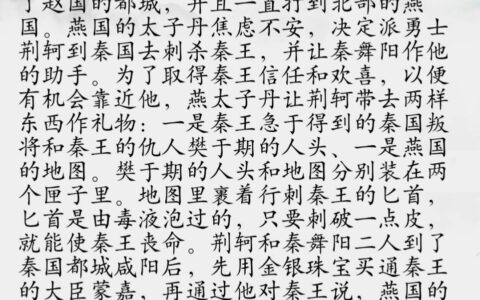 了赵国的都城，并且一直打到北部的燕
国。燕国的太子丹焦虑不安，决定派勇士
荆轲到秦国去刺杀秦王，并让秦舞阳作他
的助手。为了取得秦王信任和欢喜，以便
有机会靠近他，燕太子丹让荆轲带去两样
东西作礼物：一是秦王急于得到的秦国叛
将和秦王的仇人樊于期的人头、一是燕国
的地图。樊于期的人头和地图分别装在两
个匣子里。地图里裹着行刺秦王的匕首，
匕首是由毒液泡过的，只要刺破一点皮，
就能使秦王丧命。荆轲和秦舞阳二人到了
秦国都城咸阳后，先用金银珠宝买通秦王
的大臣蒙嘉，再通过他对秦王说，燕国的